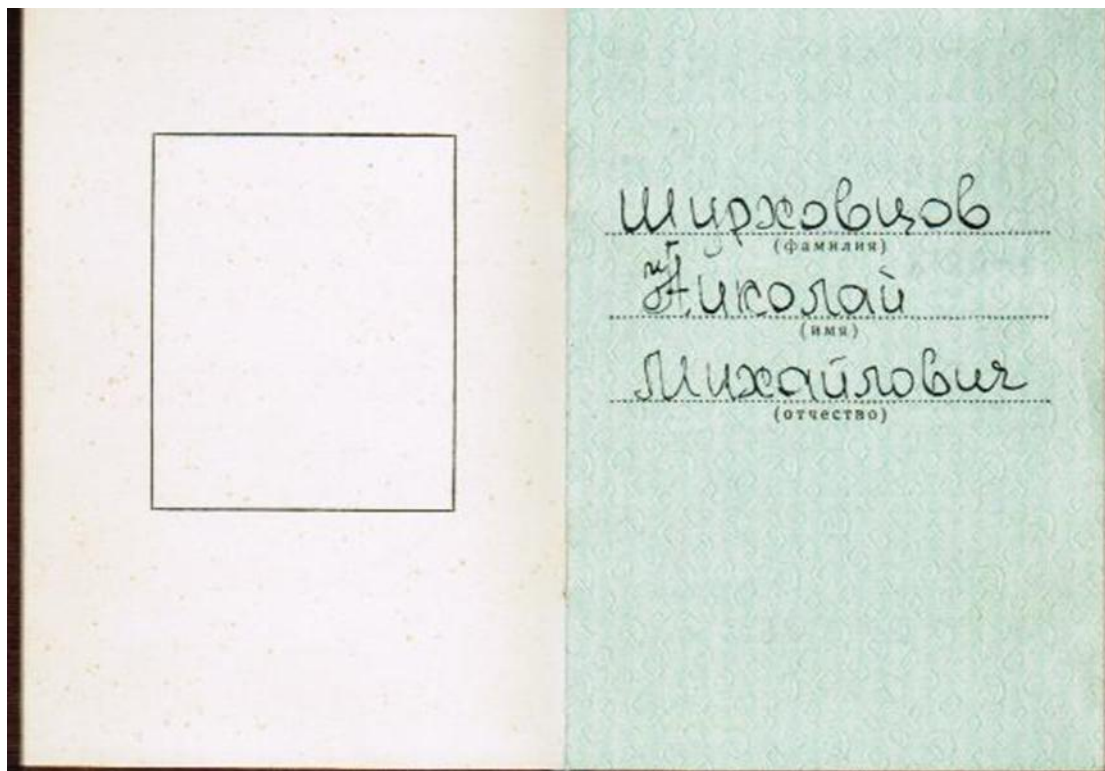 Шурховцов
(фамилия)
Николай
(имя)
Михайлович
(отчество)